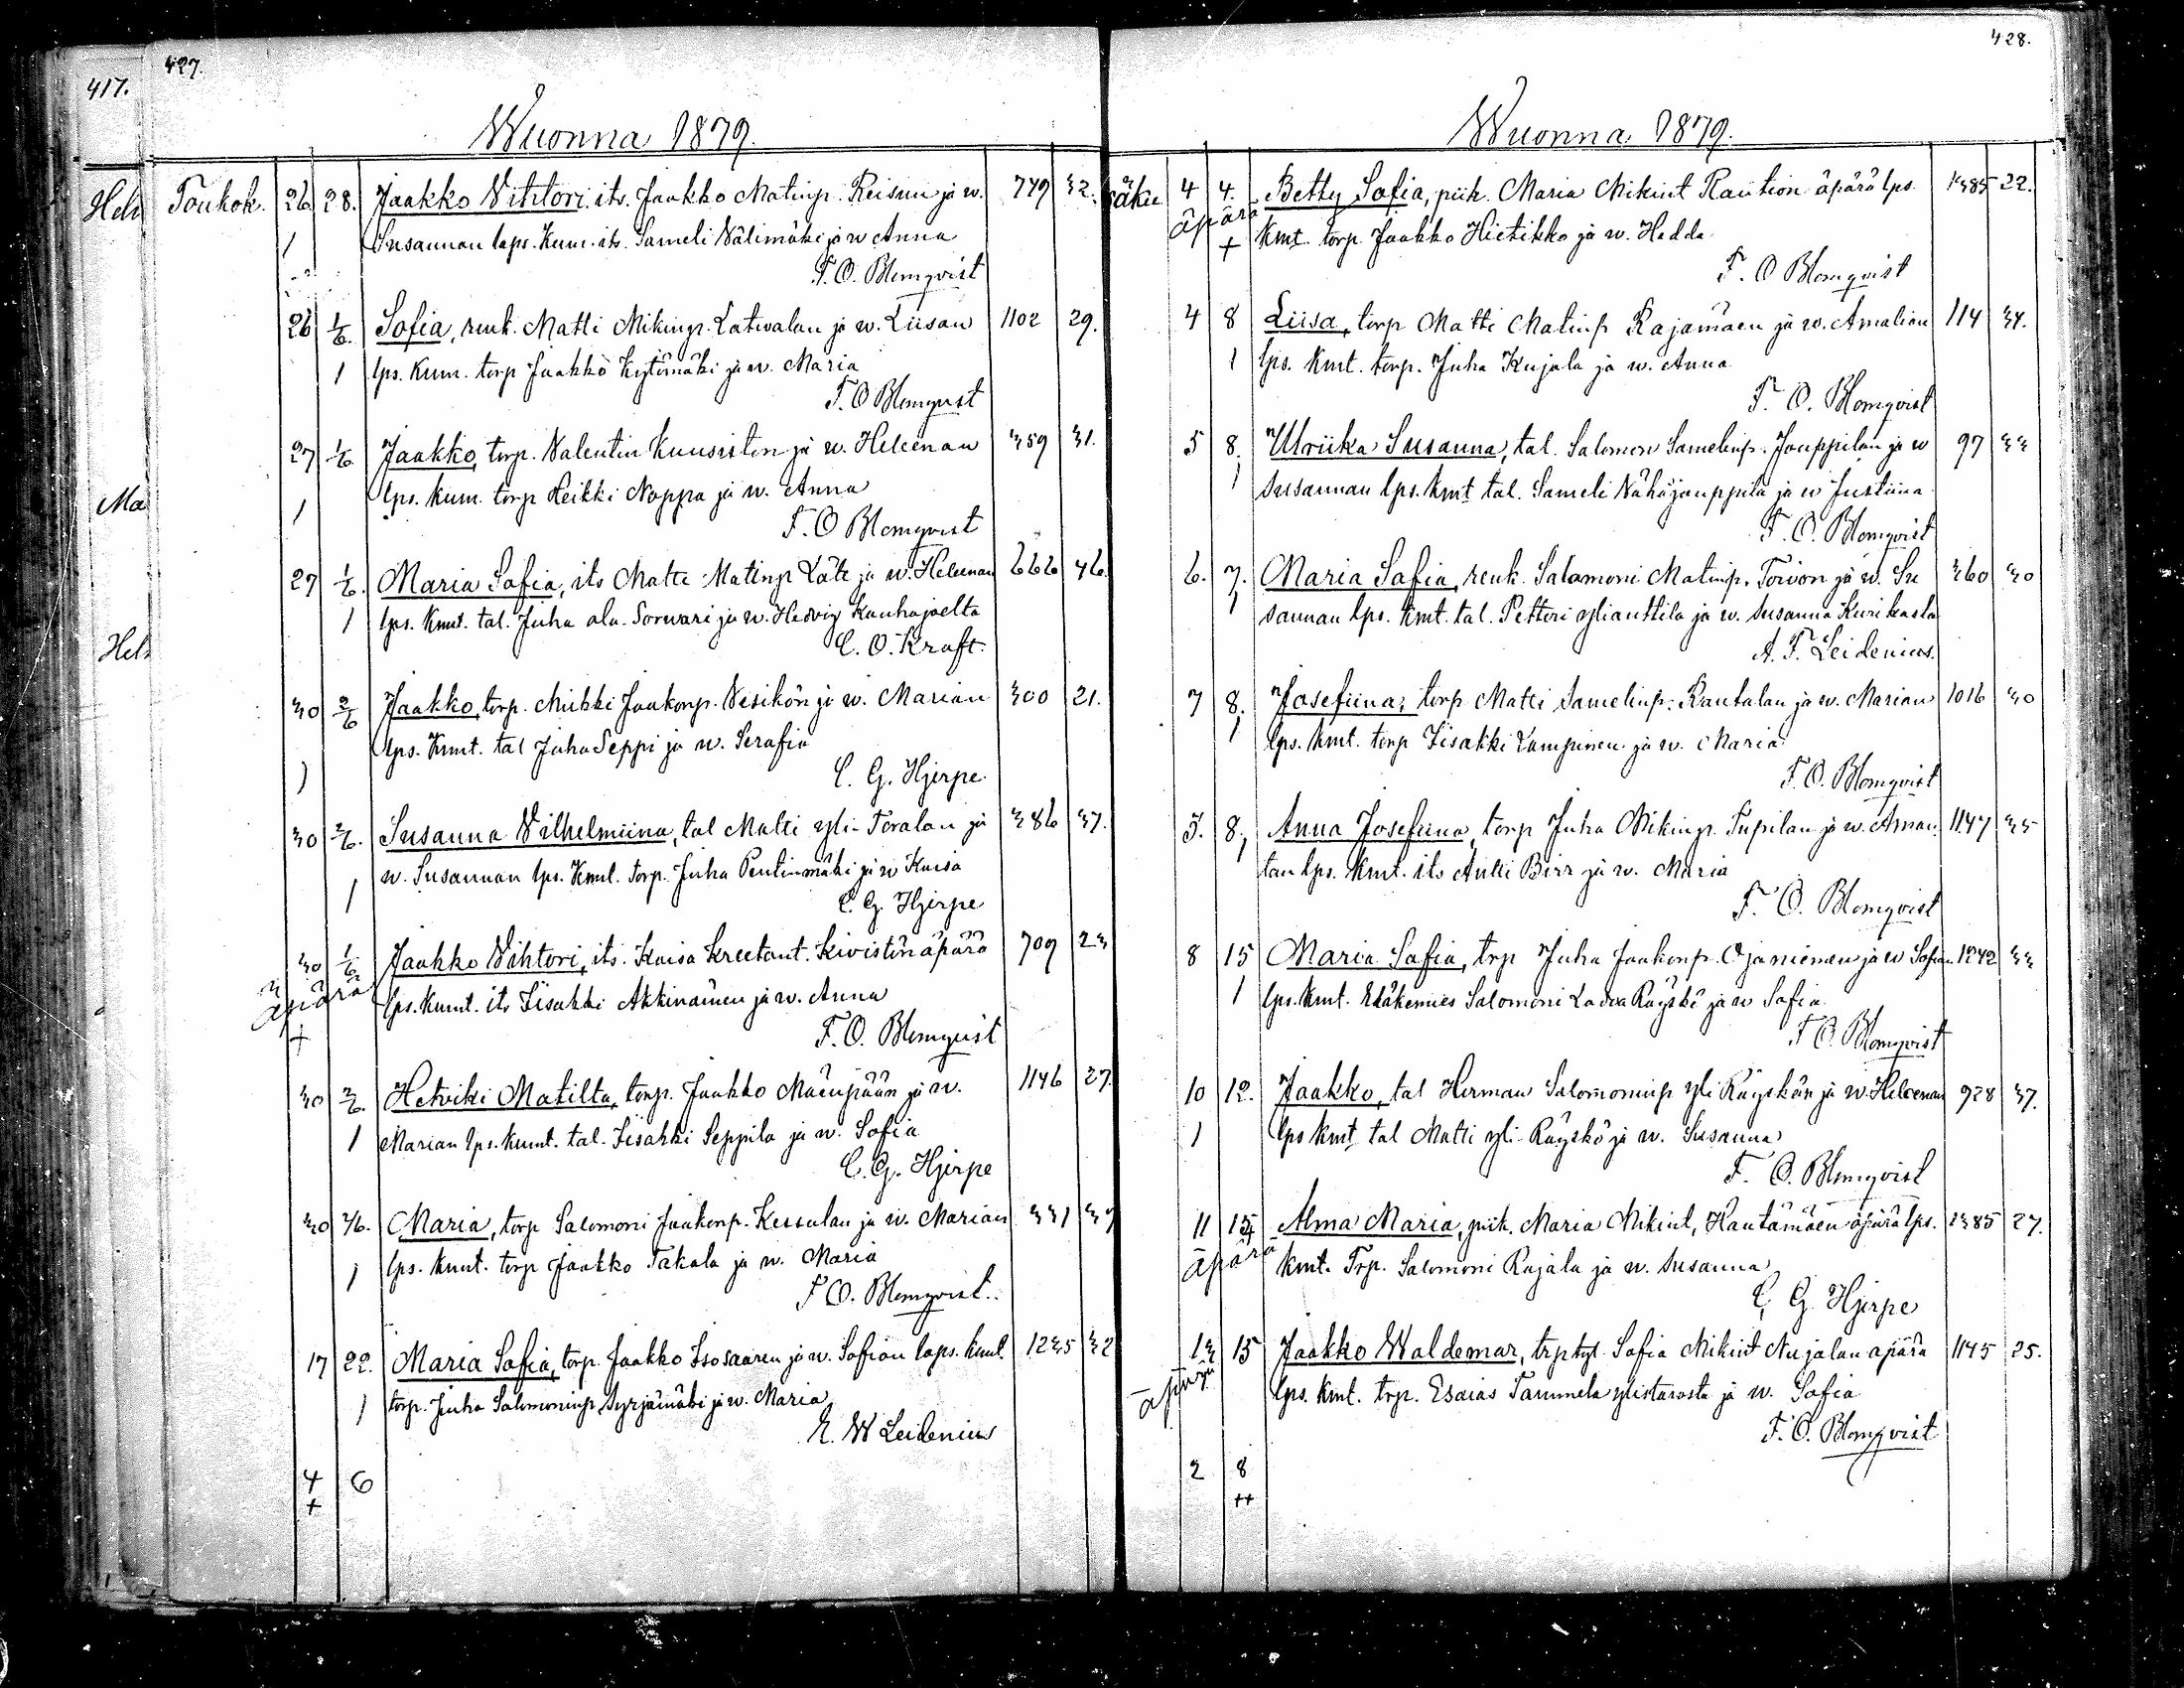 417.
427.
Wuonna 1879.
Hels
Toukok. 26 28. Jaakko Vihtori its. Jaakko Matinp. Reisun ja w. 779 32.
1 Susannan laps. Kum. its. Sameli Välimäki ja w Anna
F. O. Blomqvist
26 1/6. Sofia, renk. Matti Mikinp. Latvalan ja w. Liisan 1102 29.
1 lps. Kum. torp Jaakko Kytömäki ja w. Maria
F. O Blomqvist
27 1/6 Jaakko, torp. Valentin Kuusiston ja w. Heleenan 359 31.
Ma
1 lps. Kum. torp Heikki Noppa ja w. Anna
F. O Blomqvist
27 1/6. Maria Sofia, its Matti Matinp Läte ja w. Heleenan 666 46.
1 lps. Kmt. tal. Juha ala-Sorvari ja w. Hedvig Kauhajoelta
Hels
C. O. Kraft.
30 2/6 Jaakko, torp. Mikki Jaakonp. Vesikön ja w. Marian 300 21.
1 lps. Kmt. tal Juha Seppi ja w. Serafia
C. G. Hjerpe.
30 2/6. Susanna Vilhelmiina, tal Matti yli-Toralan ja 386 37.
1 w. Susannan lps. Kmt. torp. Juha Pentinmäki ja w Kaisa
C. G. Hjerpe
30 1/6 Jaakko Vihtori, its. Kaisa Kreetant. Kivistön äpärä 709 23
äpärä lps. Kumt. its Iisakki Akkinainen ja w. Anna
+ F. O. Blomqvist
30 2/6. Hetviki Matilta, torp. Jaakko Mäenpään ja w. 1146 27.
1 Marian lps. Kumt. tal. Iisakki Seppila ja w. Sofia
C. G. Hjerpe
30 2/6. Maria, torp Salomoni Jaakonp. Kessulan ja w. Marian 331 37
1 lps. Kumt. torp Jaakko Takala ja w. Maria
F O. Blomqvist.
17 22. Maria Sofia, torp. Jaakko Isosaaren ja w. Sofian laps. kmt. 1235 32
1 torp. Juha Salomoninp Syrjämäki ja w. Maria
E. W Leidenius
4 6
+
428.
Wuonna 1879.
säku 4 4. Betty Sofia, piik. Maria Mikint Raution äpärä lps. 1385 22.
äpärä + Kmt. torp. Jaakko Hietikko ja w. Hedda
F. O Blomqvist
4 8 Liisa, torp Matti Matinp Rajamäen ja w. Amalian 114 34.
1 lps. Kmt. torp. Juha Kujala ja w. Anna
F. O. Blomqvist
5 8. Ulriika Susanna, tal. Salomon Samelinp. Jouppilan ja w 97 33
1 Susannan lps. kmt tal. Sameli Vähäjouppila ja w Justiina
F. O. Blomqvist
6. 7. Maria Sofia, renk. Salomoni Matinp. Toivon ja w. Su 360 30
1 sannan lps. Kmt. tal. Petteri ylianttila ja w. Susanna Kurikasta
A. F. Leidenius.
7 8. Josefiina, torp Matti Samelinp. Rantalan ja w. Marian 1016 30
1 lps. Kmt. torp Iisakki Lampinen ja w. Maria
F. O. Blomqvist
7. 8, Anna Josefiina, torp Juha Mikinp. Pupilan ja w. Aman 1147 35
1 tan lps. Kmt. its Antti Birr ja w. Maria
F. O. Blomqvist
8 15 Maria Sofia, trp Juha Jaakonp. Ojaniemen ja w Sofian 1242 33
1 lps. Kmt. Eläkemies Salomoni Ladva Räyskö ja w Sofia
F O. Blomqvist
10 12. Jaakko, tal Herman Salomoninp Yli Räyskön ja w. Heleenan 928 37.
1 lps kmt tal Matti yli-Räyskö ja w. Susanna
F. O. Blomqvist
11 15 Alma Maria, piik. Maria Mikint, Hautamäen äpärä lps. 1385 27.
äpärä Kmt. Trp. Salomoni Rajala ja w. Susanna
C. G. Hjerpe
13 15 Jaakko Waldemar, trp tyt. Sofia Mikint Nujalan äpärä 1145 25.
äpärä lps. Kmt. trp. Esaias Tammela ylistarosta ja w. Sofia
F. O. Blomqvist
2 8
++